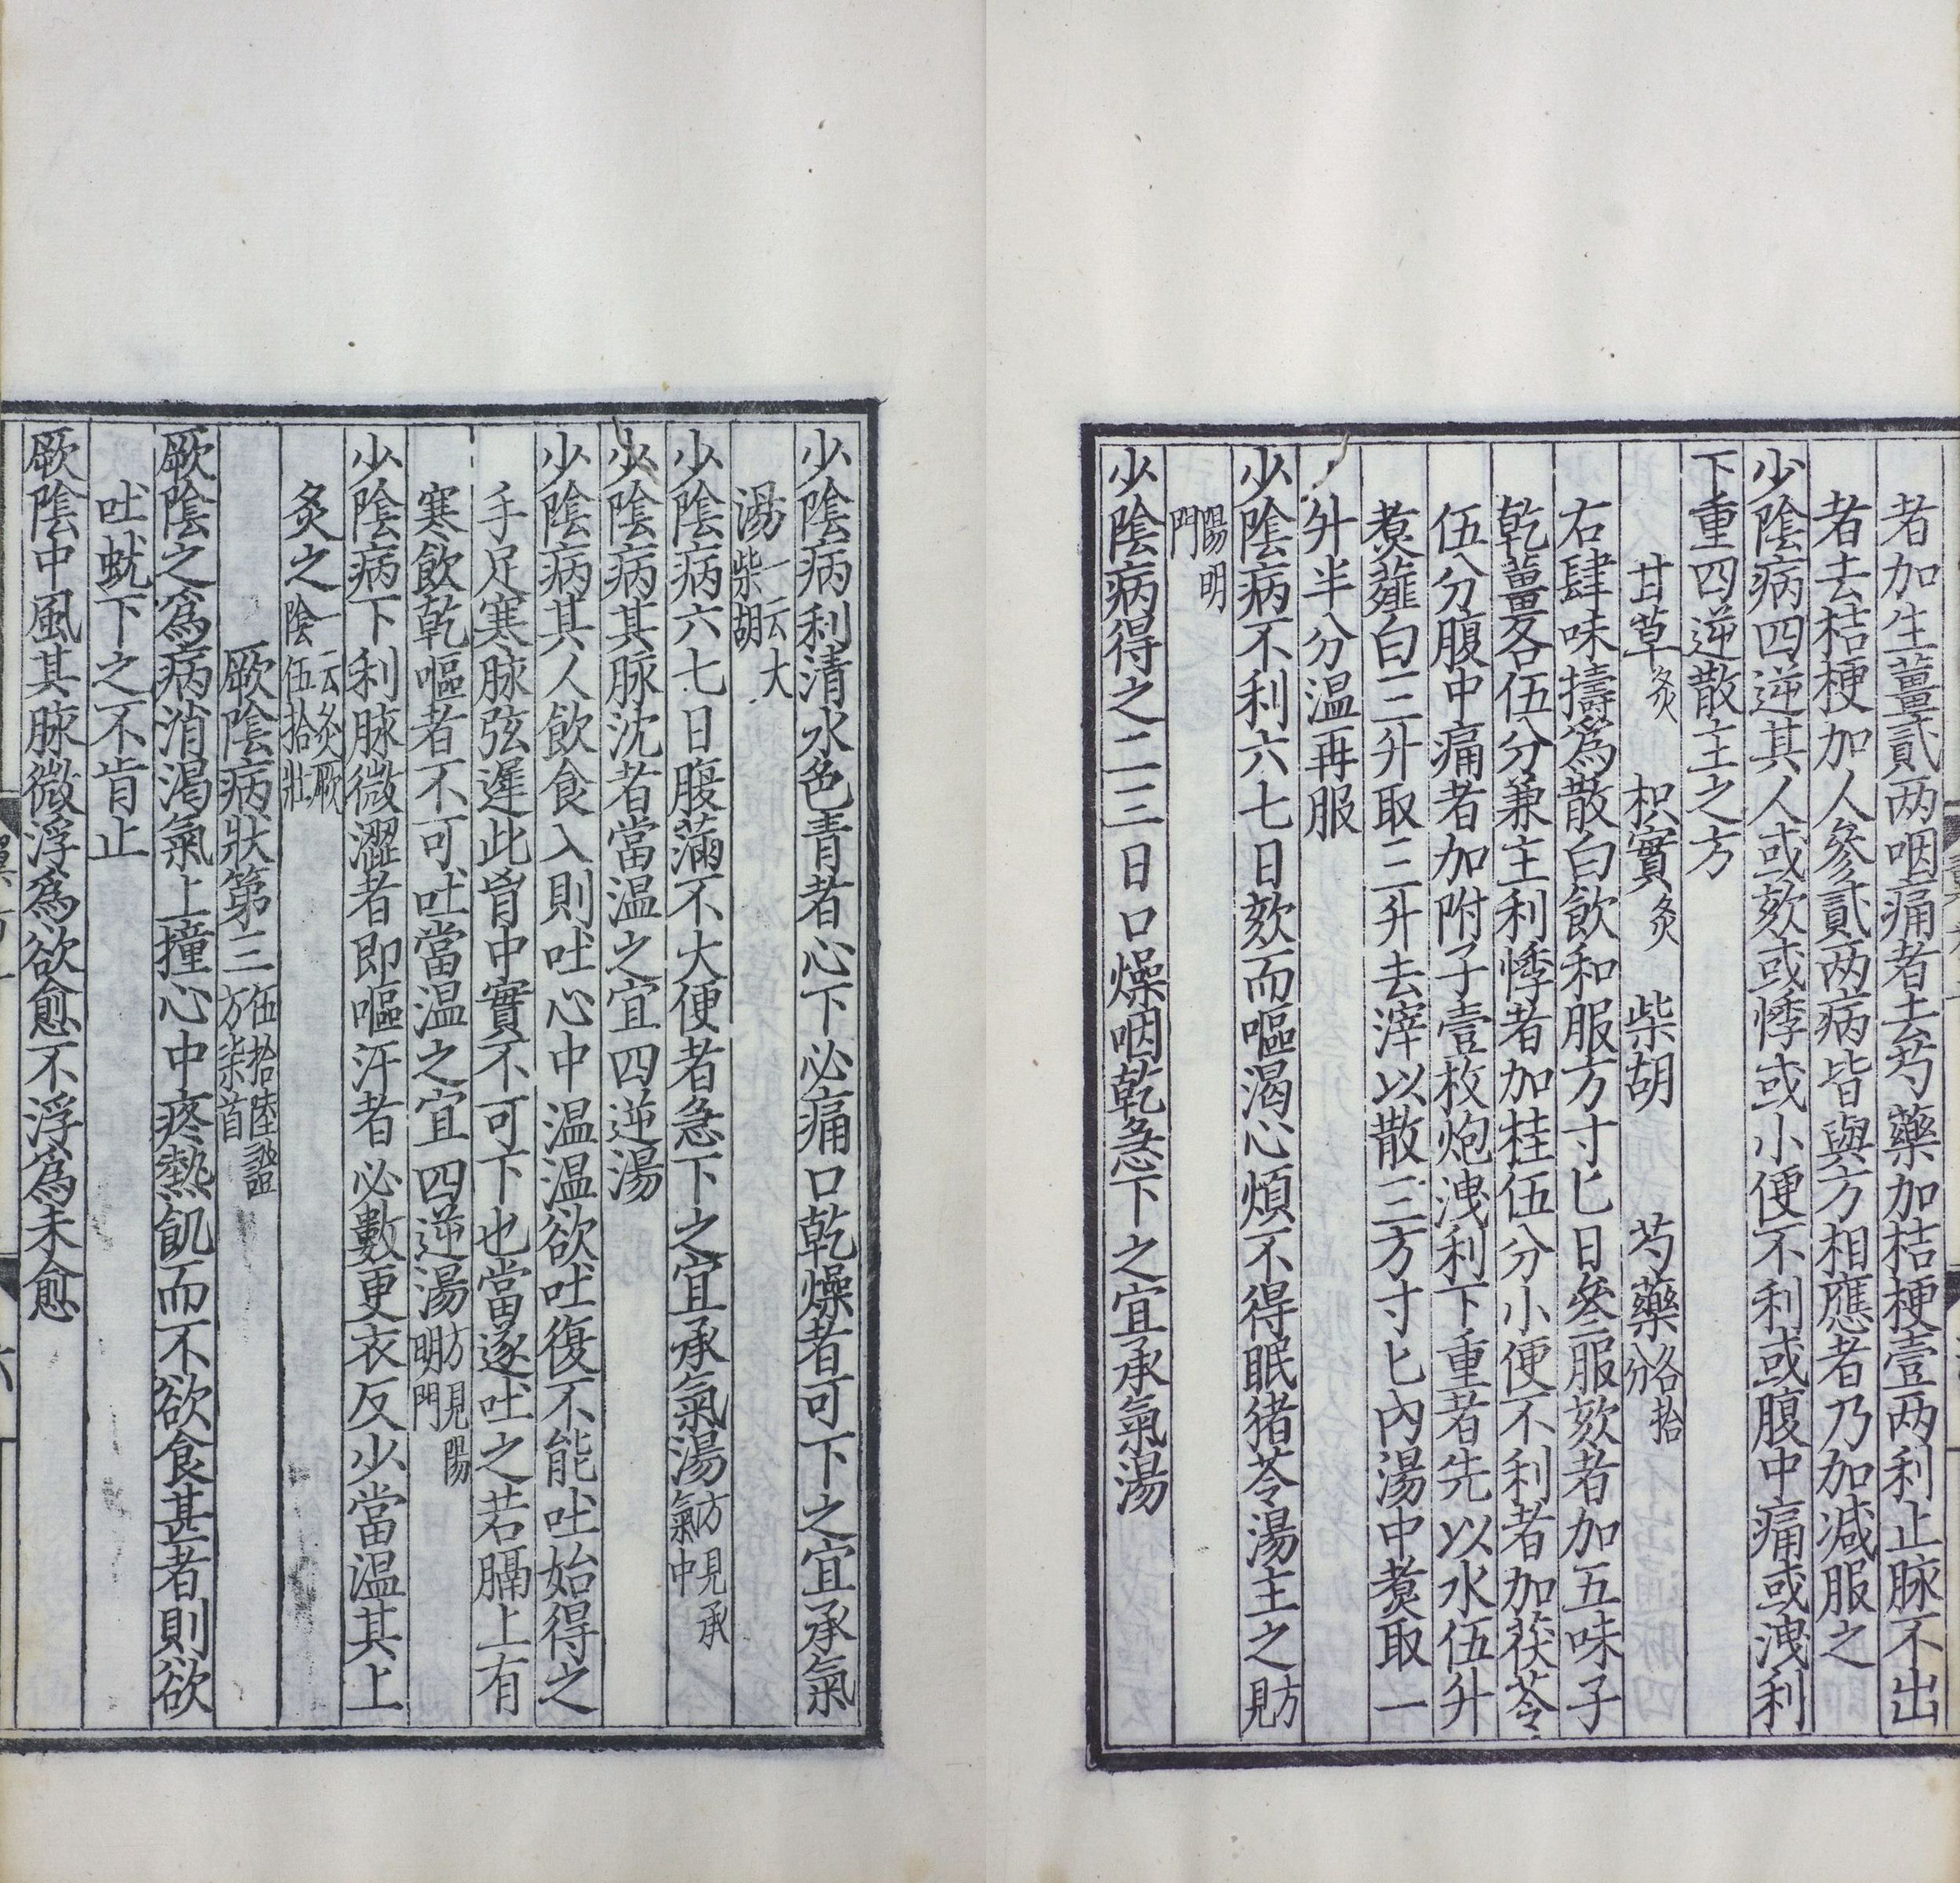 者加生薑貳两咽痛者去芍藥加桔梗壹两利止脉不出
者去桔梗加人參貳两病皆與方相應者乃加減服之
少陰病四逆其人或欬或悸或小便不利或腹中痛或洩利
下重四逆散主之方
甘草炙 枳實炙 柴胡 芍藥各拾分
右肆味擣爲散白飲和服方寸匕日叄服欬者加五味子
乾薑各伍分兼主利悸者加桂伍分小便不利者加茯苓
伍分腹中痛者加附子壹枚炮洩利下重者先以水伍升
煑薤白三升取三升去滓以散三方寸匕內湯中煑取一
升半分温再服
少陰病不利六七日欬而嘔渴心煩不得眠猪苓湯主之方見
陽明門
少陰病得之二三日口燥咽乾急下之宜承氣湯
少陰病利清水色青者心下必痛口乾燥者可下之宜承氣
湯一云大柴胡
少陰病六七日腹滿不大便者急下之宜承氣湯方見承氣中
少陰病其脉沈者當温之宜四逆湯
少陰病其人飲食入則吐心中温温欲吐復不能吐始得之
手足寒脉弦遲此胷中實不可下也當遂吐之若膈上有
寒飲乾嘔者不可吐當温之宜四逆湯方見陽明門
少陰病下利脉微澀者即嘔汗者必數更衣反少當温其上
炙之一云炙厥陰伍拾壯
厥陰病狀第三伍拾陸證方柒首
厥陰之爲病消渴氣上撞心中疼熱飢而不欲食甚者則欲
吐蚘下之不肯止
厥陰中風其脉微浮爲欲愈不浮爲未愈